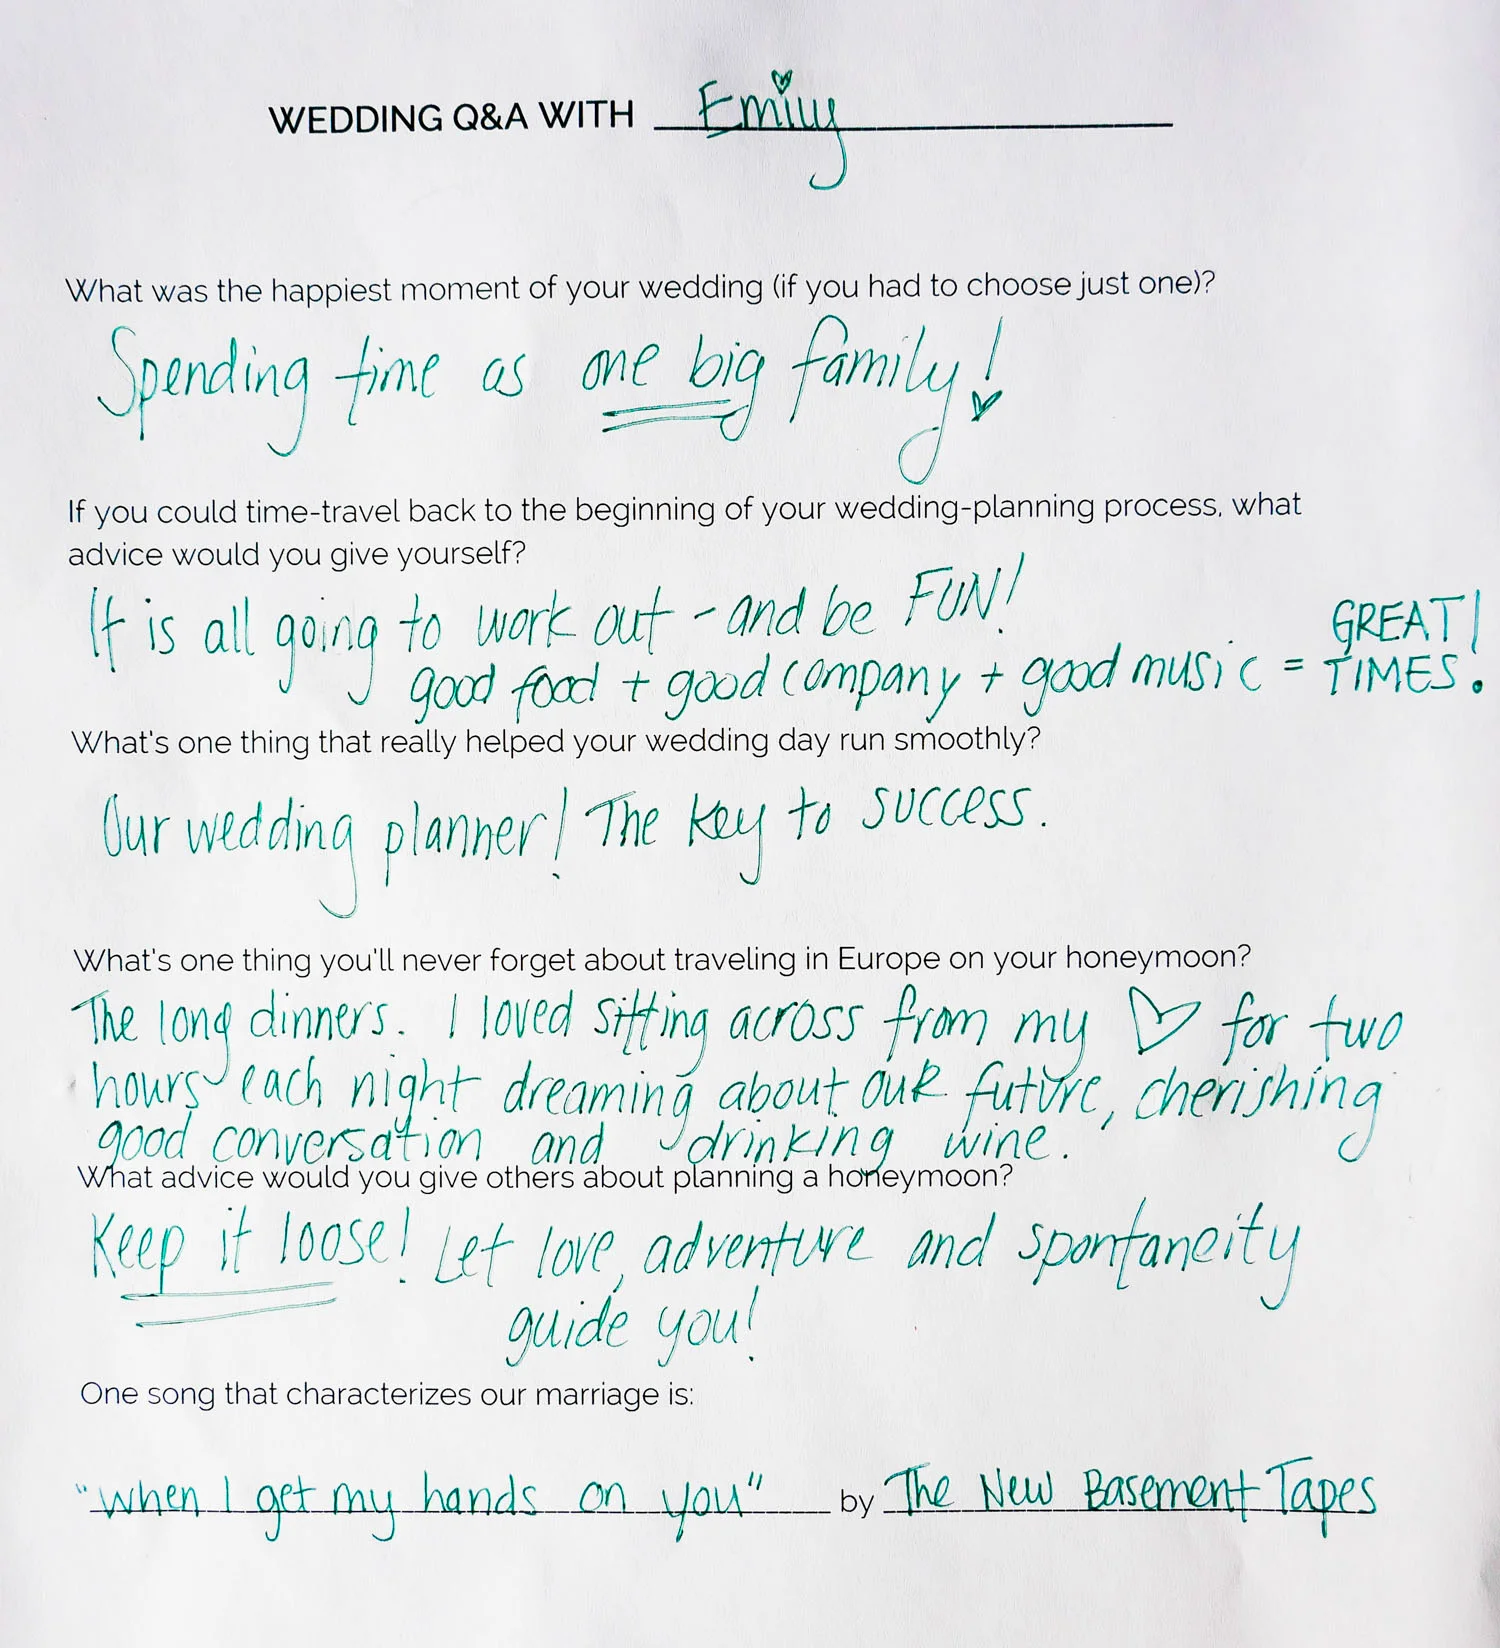 WEDDING Q&A WITH Emily
What was the happiest moment of your wedding (if you had to choose just one)?
Spending time as one big family!
If you could time-travel back to the beginning of your wedding-planning process, what
advice would you give yourself?
It is all going to work out - and be FUN!
good food + good company + good music = GREAT TIMES!
What's one thing that really helped your wedding day run smoothly?
Our wedding planner! The key to success.
What's one thing you'll never forget about traveling in Europe on your honeymoon?
The long dinners. I loved sitting across from my ♡ for two
hours each night dreaming about our future, cherishing
good conversation and drinking wine.
What advice would you give others about planning a honeymoon?
Keep it loose! Let love, adventure and spontaneity
guide you!
One song that characterizes our marriage is:
"When I get my hands on you" by The New Basement Tapes